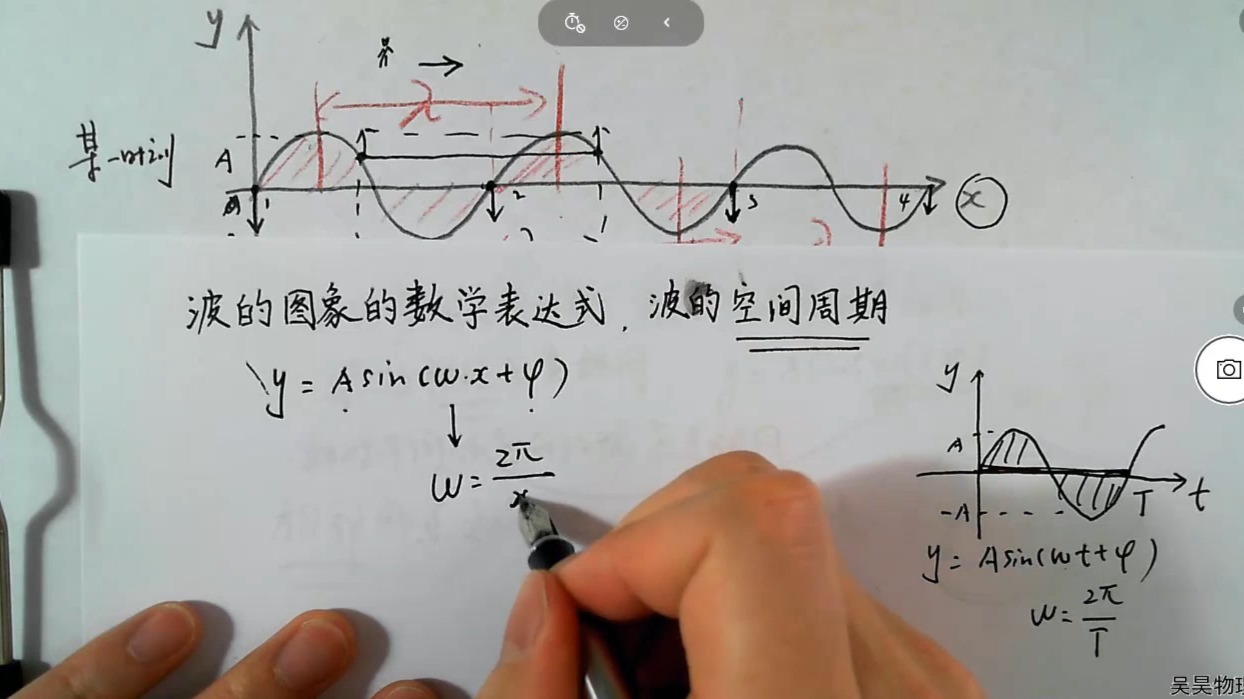 y
λ
某一时刻
A
1
2
3
4
x
波的图象的数学表达式，波的空间周期
y = A sin(ω·x+φ)
ω = 2π
y
A
-A
T
t
y = A sin(ωt+φ)
ω = 2π/T
吴昊物理